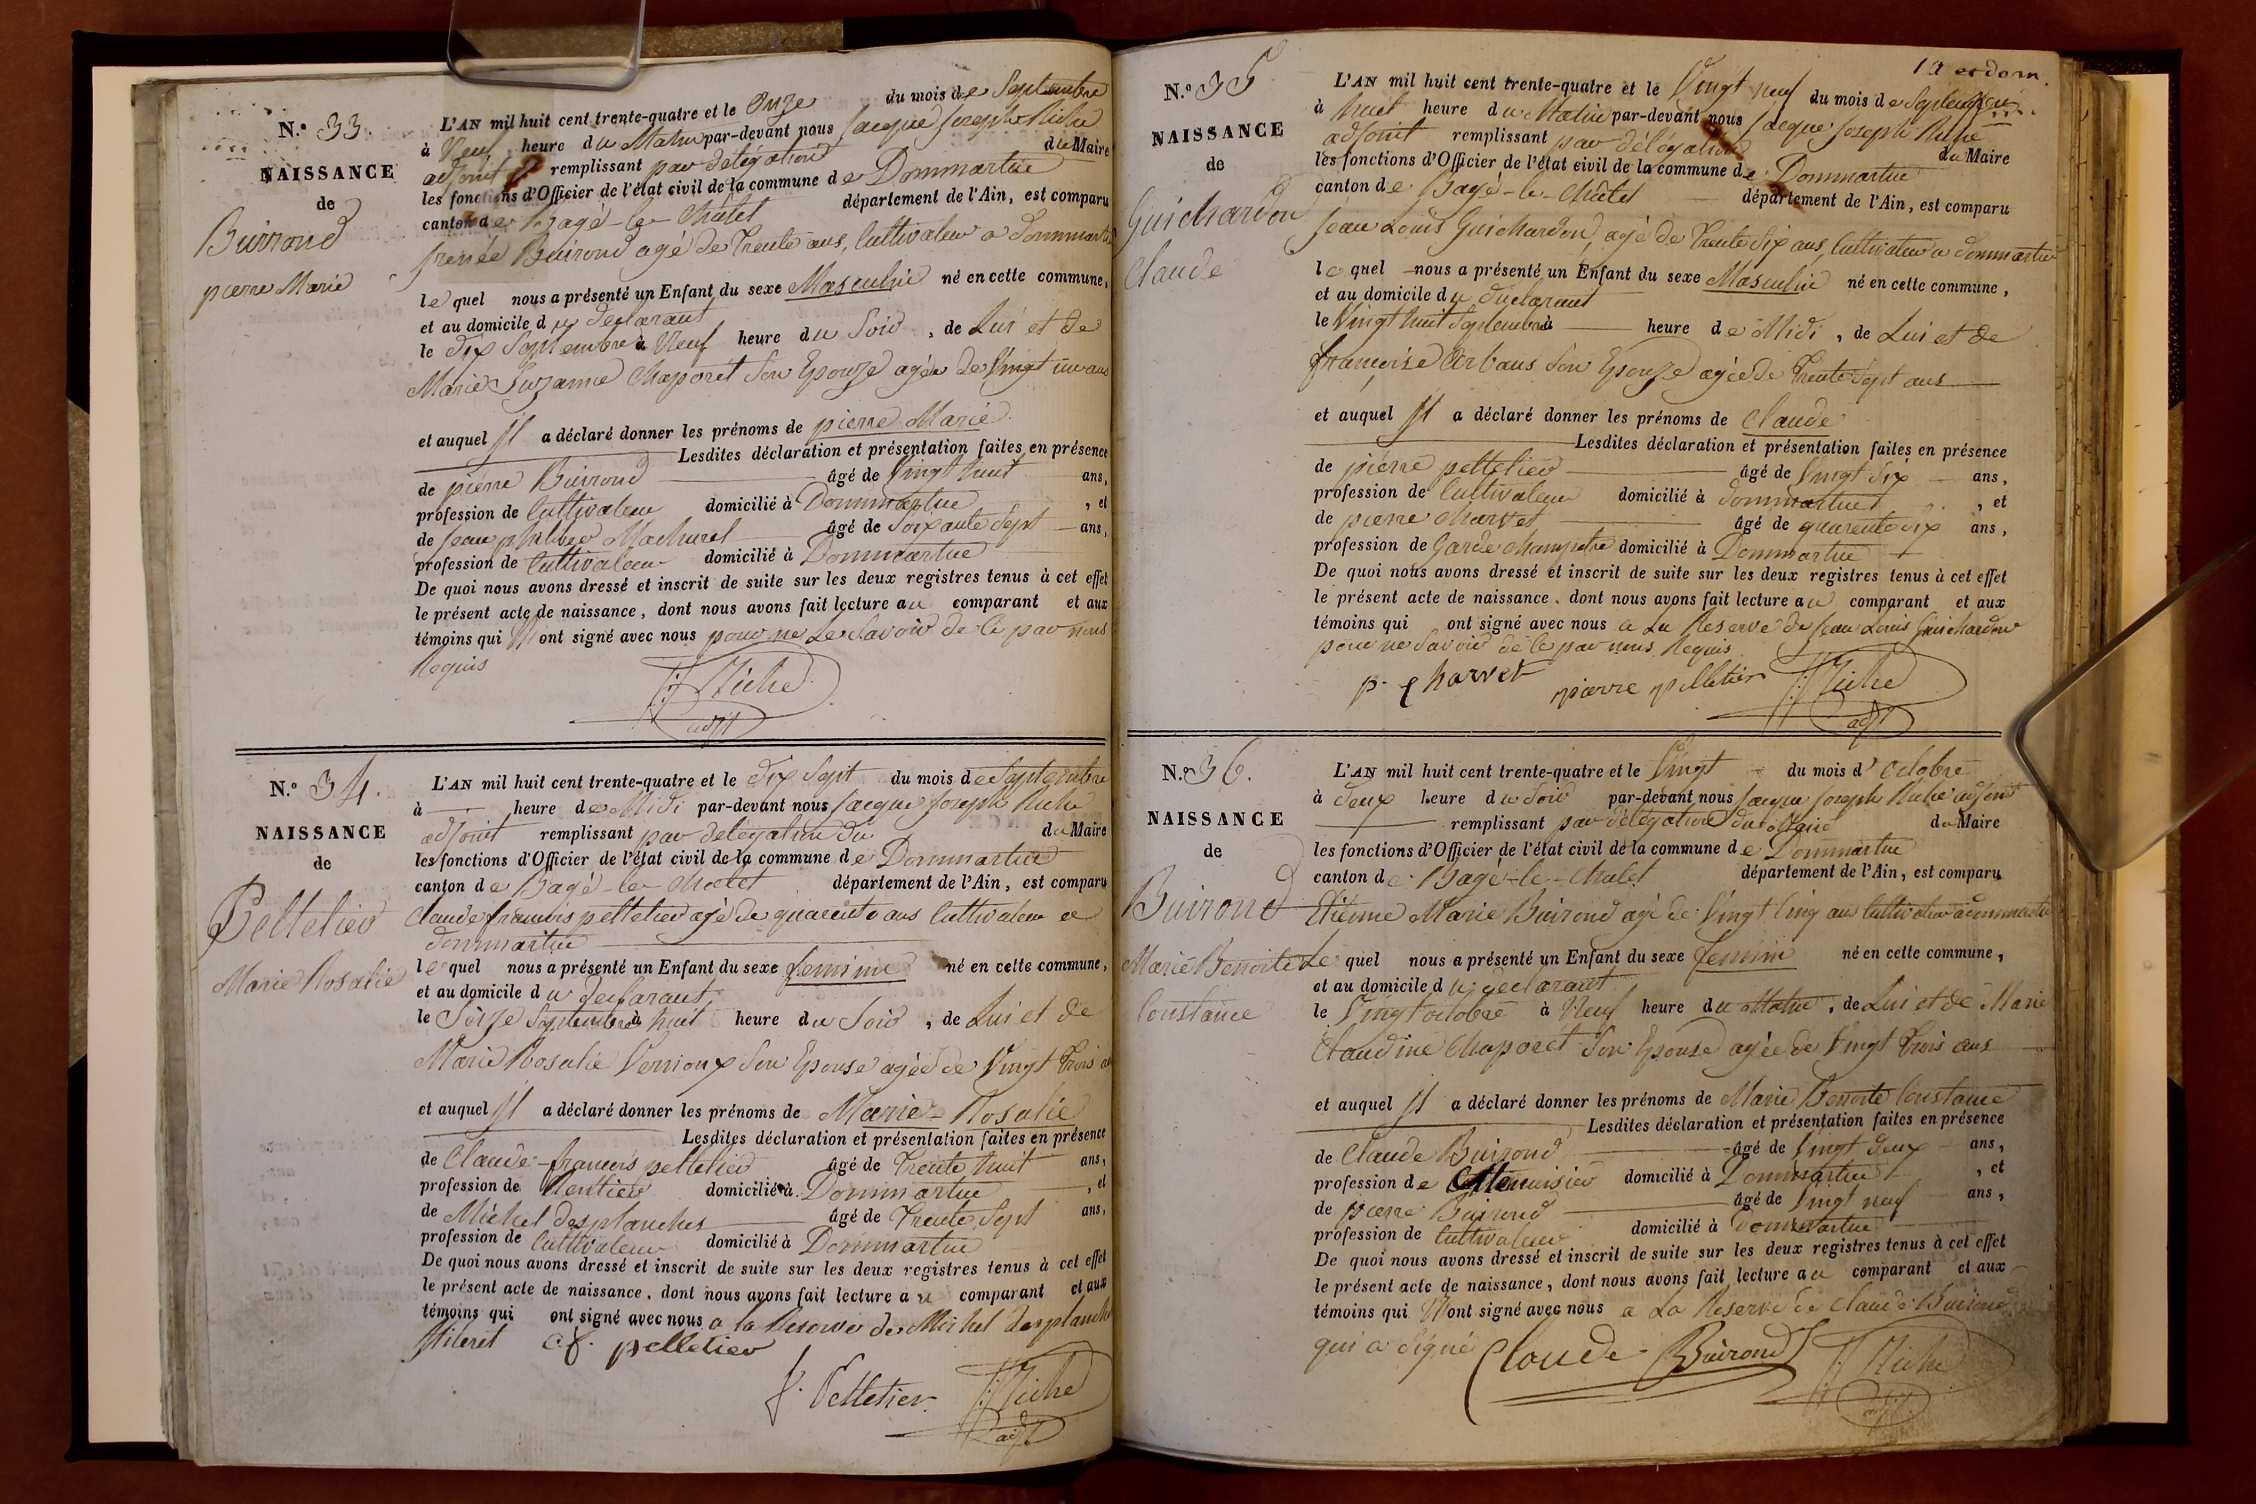 N.º 33.
NAISSANCE
de
Buirond
pierre Marie
L'AN mil huit cent trente-quatre et le Onze du mois de Septembre
à Neuf heure du Matin par-devant nous Jacque Joseph Riche
adjoint remplissant par délégation du Maire
les fonctions d'Officier de l'état civil de la commune de Dommartin
canton de Bagé-le-Châtel département de l'Ain, est comparu
Buirond agé de Trente ans, Cultivateur a Dommartin
le quel nous a présenté un Enfant du sexe Masculin né en cette commune,
et au domicile du declarant
le dix Septembre à Neuf heure du Soir, de Lui et de
Marie Suzanne Chaporet Son Epouze agée de Vingt un ans
et auquel Il a déclaré donner les prénoms de pierre Marie
Lesdites déclaration et présentation faites en présence
de pierre Buirond âgé de Vingt huit ans,
profession de Cultivateur domicilié à Dommartin, et
de Jean philiber Machuret âgé de Soixante Sept ans,
profession de Cultivateur domicilié à Dommartin
De quoi nous avons dressé et inscrit de suite sur les deux registres tenus à cet effet
le présent acte de naissance, dont nous avons fait lecture au comparant et aux
témoins qui N ont signé avec nous pour ne Le Savoir de ce par nous
Requis
JJ Riche
adjt
N.º 34.
NAISSANCE
de
Pelletier
Marie Rosalie
L'AN mil huit cent trente-quatre et le dix Sept du mois de Septembre
à heure de Midi par-devant nous Jacque Joseph Riche
adjoint remplissant par delégation du du Maire
les fonctions d'Officier de l'état civil de la commune de Dommartin
canton de Bagé-le-Chatel département de l'Ain, est comparu
Claude francois pelletier agé de quarente ans Cultivateur a
dommartin
le quel nous a présenté un Enfant du sexe feminin né en cette commune,
et au domicile du declarant
le Seize Septembre à huit heure du Soir, de Lui et de
Marie Rosalie Vernoux Son Epouse agée de Vingt trois
et auquel Il a déclaré donner les prénoms de Marie-Rosalie
Lesdites déclaration et présentation faites en présence
de Claude-francois pelletier âgé de Trente huit ans,
profession de Rentier domicilié à Dommartin, et
de Michel desplanches âgé de Trente Sept ans,
profession de Cultivateur domicilié à Dommartin
De quoi nous avons dressé et inscrit de suite sur les deux registres tenus à cet effet
le présent acte de naissance, dont nous avons fait lecture au comparant et aux
témoins qui ont signé avec nous a la Reserve de Michel desplanches
Illiteret cf. pelletier
f. Pelletier JJ Riche
adjt
N.º 35
NAISSANCE
de
Guichardon
Claude
L'AN mil huit cent trente-quatre et le Vingt neuf du mois de Septembre
à huit heure du Matin par-devant nous Jacque Joseph Riche
adjoint remplissant par délégation du Maire
les fonctions d'Officier de l'état civil de la commune de Dommartin
canton de Bagé-le-Châtel département de l'Ain, est comparu
Jean Louis Guichardon agé de Trente Six ans, Cultivateur a dommartin
le quel nous a présenté un Enfant du sexe Masculin né en cette commune,
et au domicile du declarant
le Vingt huit Septembre à heure de Midi, de Lui et de
françoise Arbans Son Epouze agée de Trente Sept ans
et auquel Il a déclaré donner les prénoms de Claude
Lesdites déclaration et présentation faites en présence
de pierre pelletier âgé de Vingt Six ans,
profession de Cultivateur domicilié à dommartin, et
de pierre charvet âgé de quarente six ans,
profession de Garde champetre domicilié à Dommartin
De quoi nous avons dressé et inscrit de suite sur les deux registres tenus à cet effet
le présent acte de naissance, dont nous avons fait lecture au comparant et aux
témoins qui ont signé avec nous a La Reserve de Jean Louis Guichardon
pour ne Savoir de ce par nous Requis
p. charvet pierre pelletier JJ Riche
adjt
N.º 36.
NAISSANCE
de
Buirond
Marie Benoite
Constance
L'AN mil huit cent trente-quatre et le Vingt du mois d'Octobre
à deux heure du Soir par-devant nous Jacque Joseph Riche adjoint
remplissant par délégation du Maire du Maire
les fonctions d'Officier de l'état civil de la commune de Dommartin
canton de Bagé-le-Chatel département de l'Ain, est comparu
Etienne Marie Buirond agé de Vingt Cinq ans Cultivateur a dommartin
Le quel nous a présenté un Enfant du sexe feminin né en cette commune,
et au domicile du declarant
le Vingt octobre à Neuf heure du Matin, de Lui et de Marie
Claudine Chaporet Son Epouse agée de Vingt trois ans
et auquel Il a déclaré donner les prénoms de Marie Benoite Constance
Lesdites déclaration et présentation faites en présence
de Claude Buirond âgé de Vingt deux ans,
profession de Menuisier domicilié à Dommartin, et
de pierre Buirond âgé de Vingt neuf ans,
profession de Cultivateur domicilié à Dommartin
De quoi nous avons dressé et inscrit de suite sur les deux registres tenus à cet effet
le présent acte de naissance, dont nous avons fait lecture au comparant et aux
témoins qui N ont signé avec nous a La Reserve de Claude Buirond
qui a Signé Claude Buirond JJ Riche
adjt